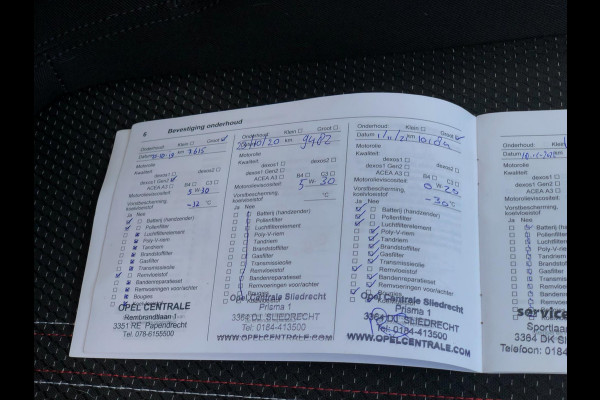 6 Bevestiging onderhoud
Onderhoud: Klein Groot
Datum km 3615
Motorolie
Kwaliteit:
dexos1 dexos2
dexos1 Gen2
ACEA A3 B4 C3
Motorolieviscositeit:
5 W 30
Vorstbescherming,
koelvloeistof
-32 °C
Ja Nee
Batterij (handzender)
Pollenfilter
Luchtfilterelement
Poly-V-riem
Tandriem
Brandstoffilter
Gasfilter
Transmissieolie
Remvloeistof
Bandenreparatieset
Remvoeringen voor/achter
Bougies
OPEL CENTRALE
Rembrandtlaan 1
3351 RE Papendrecht
Tel: 078-6155500
Onderhoud: Klein Groot
Datum /10/20 km 9482
Motorolie
Kwaliteit:
dexos1 dexos2
dexos1 Gen2
ACEA A3 B4 C3
Motorolieviscositeit:
5 W 30
Vorstbescherming,
koelvloeistof
°C
Ja Nee
Batterij (handzender)
Pollenfilter
Luchtfilterelement
Poly-V-riem
Tandriem
Brandstoffilter
Gasfilter
Transmissieolie
Remvloeistof
Bandenreparatieset
Remvoeringen voor/achter
Opel Centrale Sliedrecht
Prisma 1
3364 DJ SLIEDRECHT
Tel: 0184-413500
WWW.OPELCENTRALE.COM
Onderhoud: Klein Groot
Datum km
Motorolie
Kwaliteit:
dexos1 dexos2
dexos1 Gen2
ACEA A3 B4 C3
Motorolieviscositeit:
0 W 20
Vorstbescherming,
koelvloeistof
-30 °C
Ja Nee
Batterij (handzender)
Pollenfilter
Luchtfilterelement
Poly-V-riem
Tandriem
Brandstoffilter
Gasfilter
Transmissieolie
Remvloeistof
Bandenreparatieset
Remvoeringen voor/achter
Bougies
Opel Centrale Sliedrecht
Prisma 1
3364 DJ SLIEDRECHT
Tel: 0184-413500
WWW.OPELCENTRALE.COM
Onderhoud:
Datum
Motorolie
Kwaliteit:
dexos1
dexos1 Gen2
ACEA A3
Motorolieviscositeit
Vorstbescherming,
koelvloeistof
Ja Nee
service
Sportlaa
3364 DK S
Telefoon: 0184